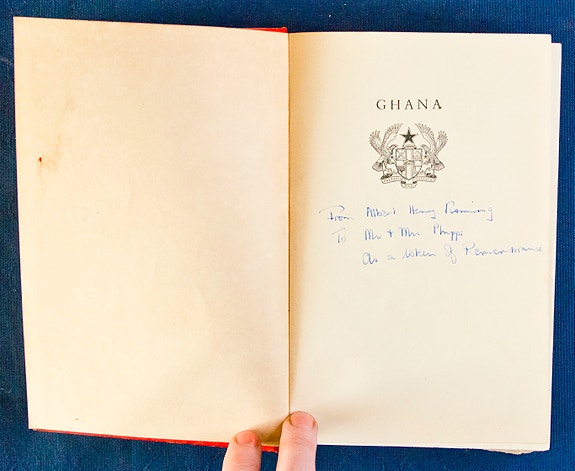 GHANA
From Albert Henry
To Mr & Mrs Phipps
As a token of Remembrance